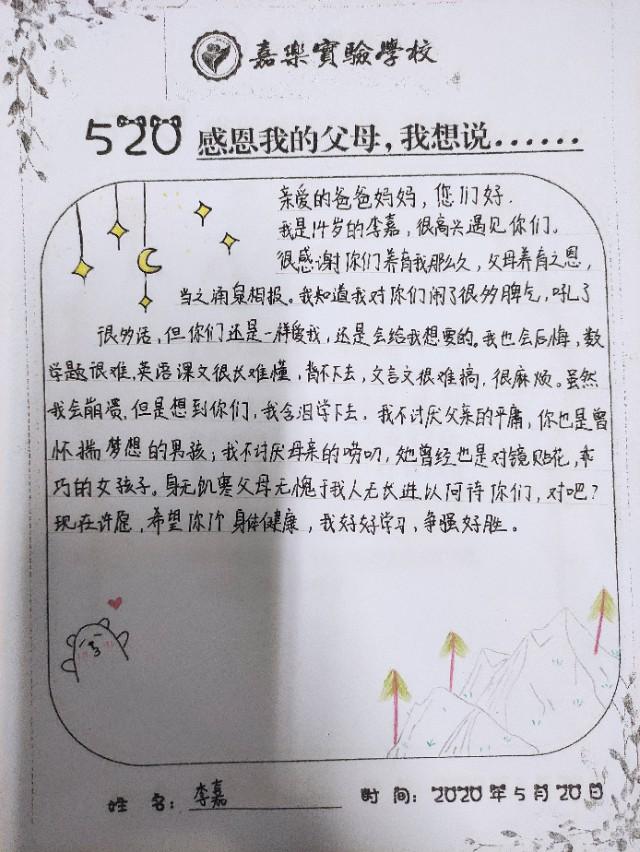 嘉樂實驗學校
520 感恩我的父母，我想说......
亲爱的爸爸妈妈，您们好.
我是14岁的李嘉，很高兴遇见你们。
很感谢你们养育我那么久，父母养育之恩，
当之涌泉相报。我知道我对你们闹了很多脾气，吼了
很多话，但你们还是一样爱我，还是会给我想要的。我也会后悔，数
学题很难，英语课文很长难懂，背不下去，文言文很难搞，很麻烦。虽然
我会崩溃，但是想到你们，我含泪学下去．我不讨厌父亲的平庸，你也是曾
怀揣梦想的男孩；我不讨厌母亲的唠叨，她曾经也是对镜贴花，乖
巧的女孩子。身无饥寒父母无愧于我人无长进以何待你们，对吧？
现在许愿，希望你们身体健康，我好好学习，争强好胜。
姓 名：李嘉 时 间：2020年5月20日